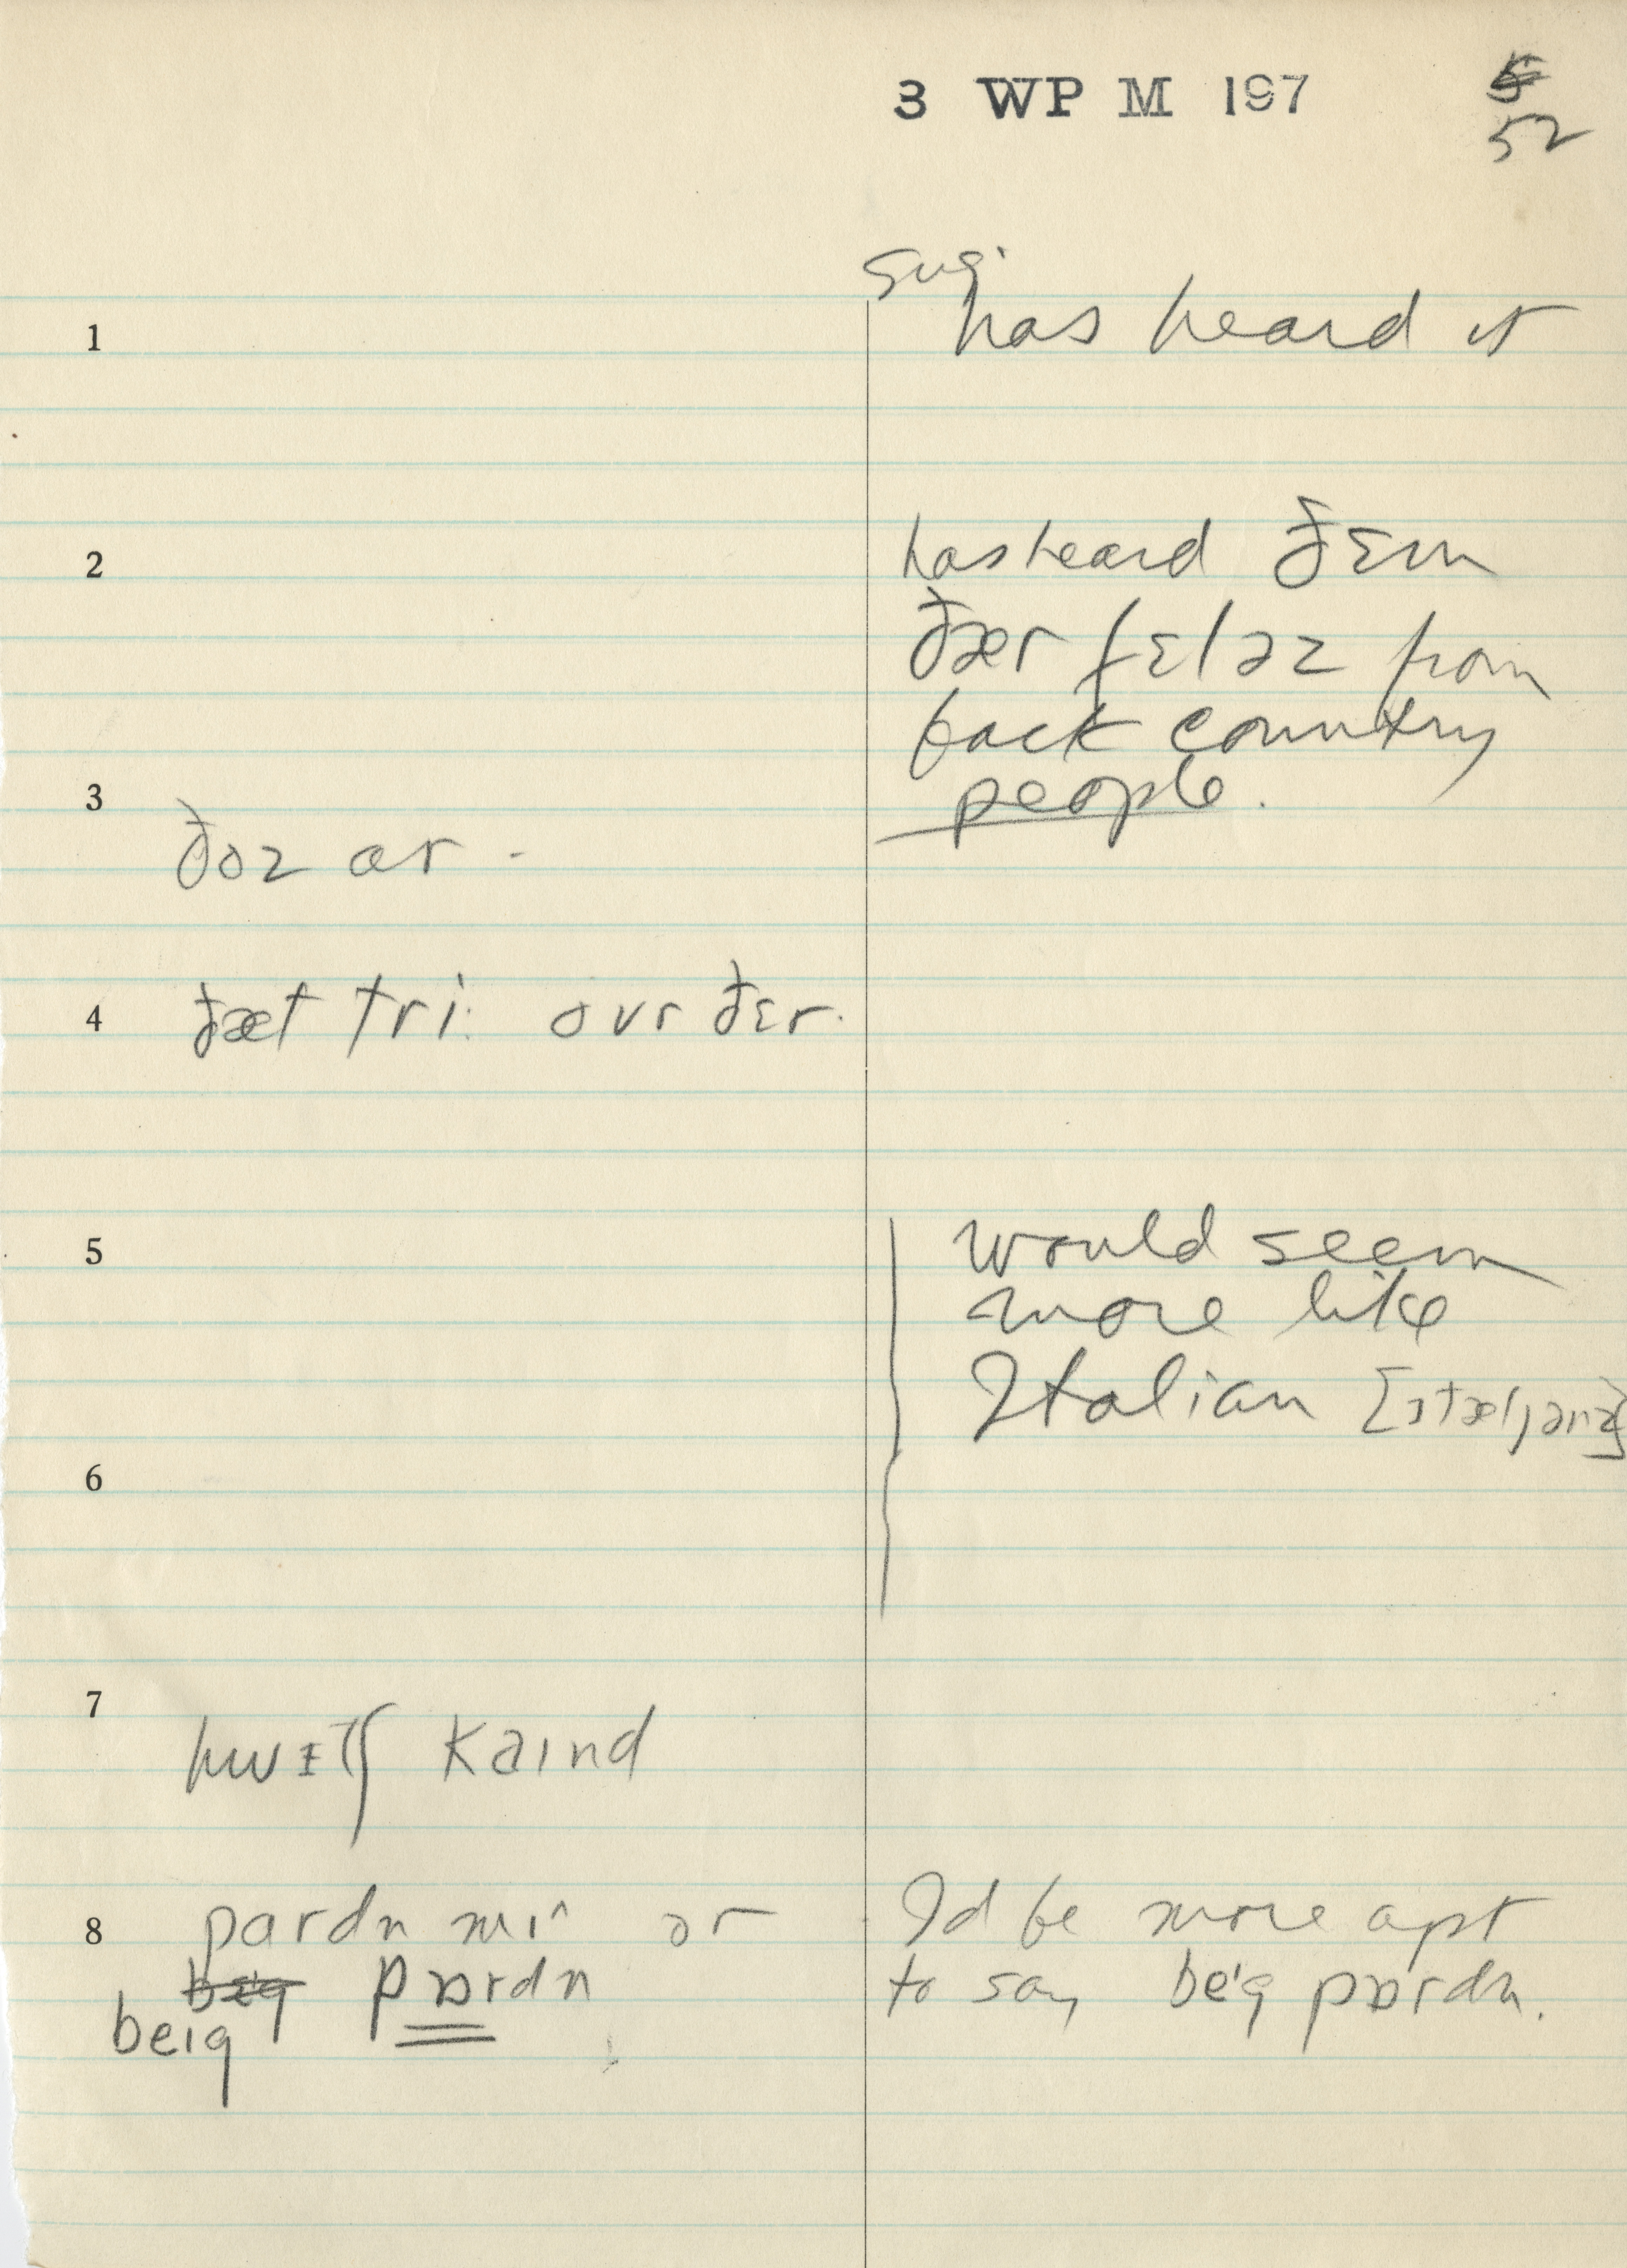 3 WP M 197
52
sug.
1 has heard it
2 has heard ðɛm
ðær fɛləz from
back country
3 people.
ðoz ar -
4 ðæt tri: ovr ðɛr.
5 would seem
more like
Italian [ɪtæljənz]
6
7
hwɪtʃ kaɪnd
8 pardn mi^ or I'd be more apt
bɛɪg pɒrdn to say be'g pɒrdn.
beɪg